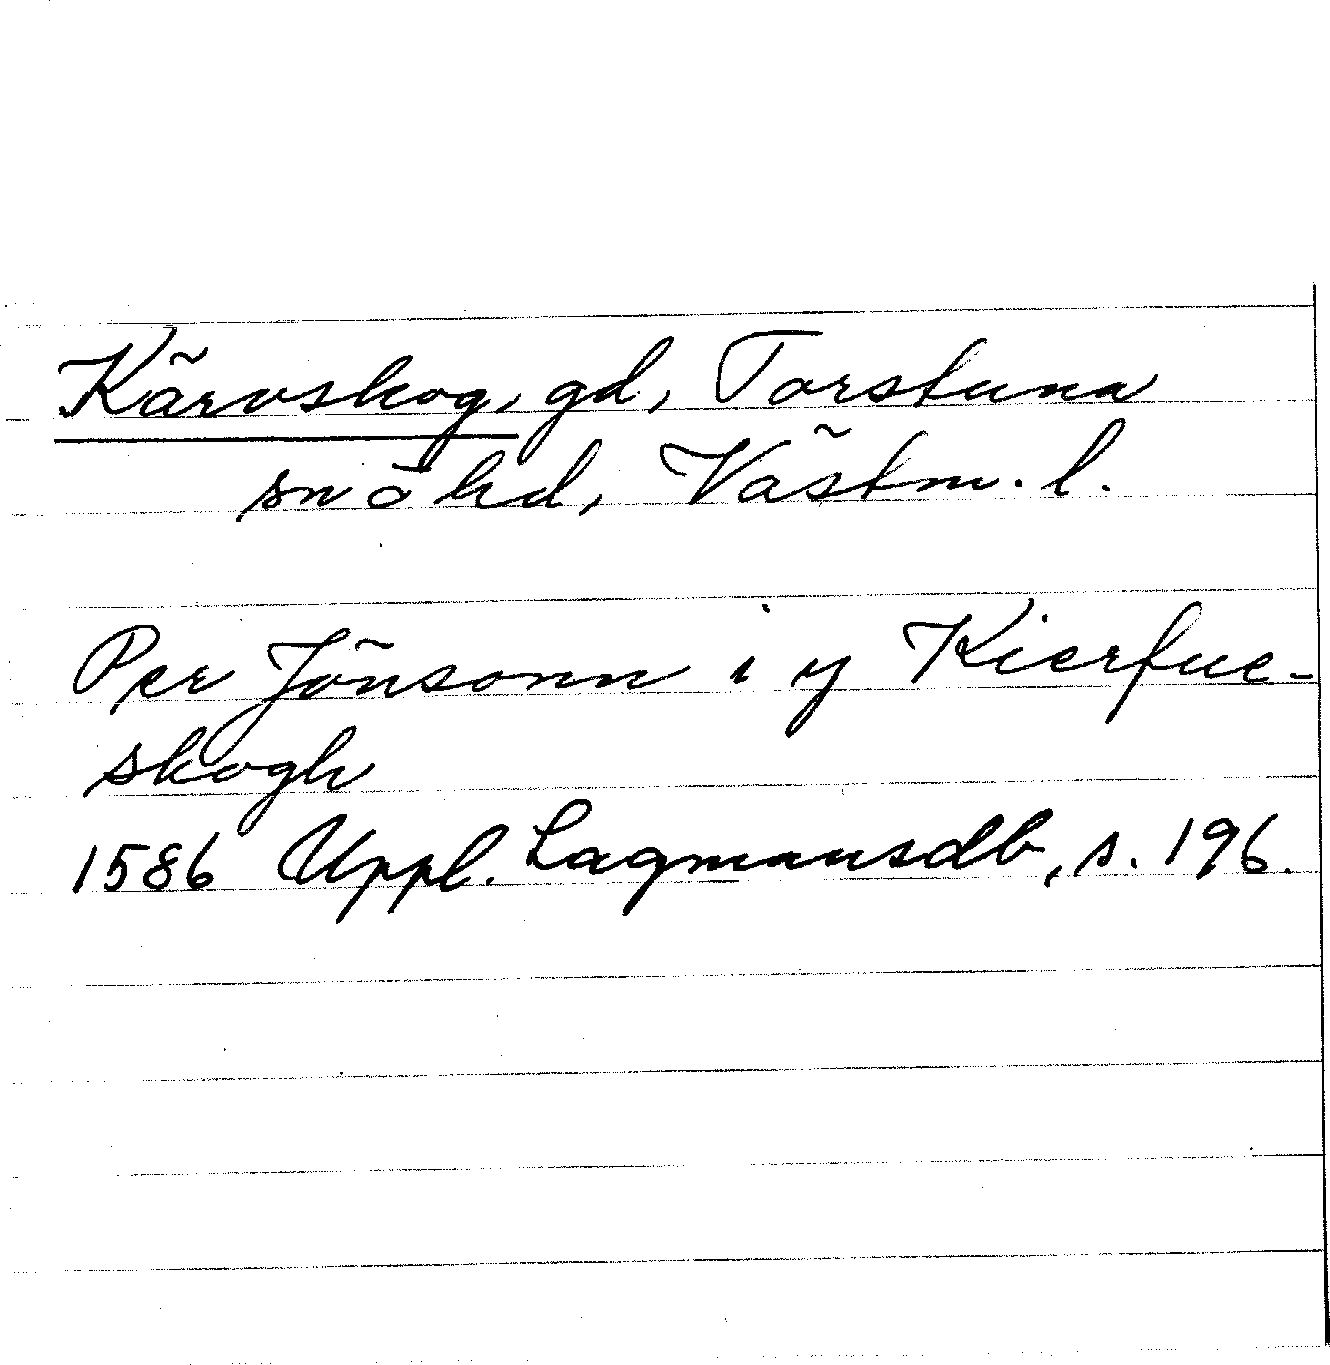 Kärvskog, gd, Torstuna
sn o hd, Västm. l.
Per Jönsonn i y Kierfue-
skogh
1586 Uppl. Lagmansdb, s. 196.